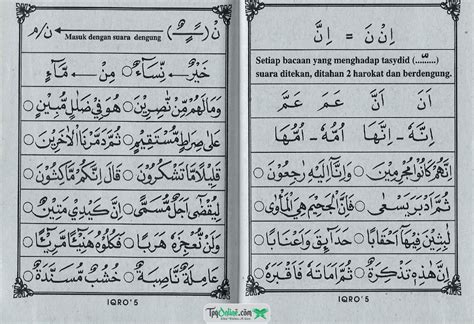 اِنْ نَ = اِنَّ
Setiap bacaan yang menghadap tasydid (...ّ...)
suara ditekan, ditahan 2 harokat dan berdengung.
اَنَ اَنَّ عَمَ عَمَّ
اِنَّهٗ - اِنَّهَا اُمُّهٗ - اُمُّهَا
اِنَّهُمْ كَانُوْا مُجْرِمِيْنَ ○ وَاِنَّآ اِلَيْهِ رَاجِعُوْنَ ○
ثُمَّ اَدْبَرَ يَسْعٰى ○ فَاِنَّ الْجَحِيْمَ هِيَ الْمَأْوٰى ○
لٰبِثِيْنَ فِيْهَآ اَحْقَابًا ○ حَدَآئِقَ وَاَعْنَابًا ○
اِنَّ هٰذِهٖ تَذْكِرَةٌ ○ ثُمَّ اَمَاتَهٗ فَاَقْبَرَهٗ ○
IQRO' 5
Masuk dengan suara dengung ن/م
خَيْرٌ نِّسَآءٌ ○ مِنْ مَّآءٍ
وَمَا لَهُمْ مِّنْ نّٰصِرِيْنَ ○ هُوَ فِيْ ضَلٰلٍ مُّبِيْنٍ ○
عَلٰى صِرَاطٍ مُّسْتَقِيْمٍ ○ ثُمَّ دَمَّرْنَا الْاٰخَرِيْنَ ○
قَلِيْلًا مَّا تَشْكُرُوْنَ ○ قَالَ اِنَّكُمْ مَّاكِثُوْنَ ○
لِيُقْضٰٓى اَجَلٌ مُّسَمًّى ○ اِنَّ كَيْدِيْ مَتِيْنٌ ○
وَلَنْ نُّعْجِزَهٗ هَرَبًا ○ فَكُلُوْهُ هَنِيْٓئًا مَّرِيْٓئًا ○
عَامِلَةٌ نَّاصِبَةٌ ○ خُشُبٌ مُّسَنَّدَةٌ ○
IQRO' 5
TpqOnline.com